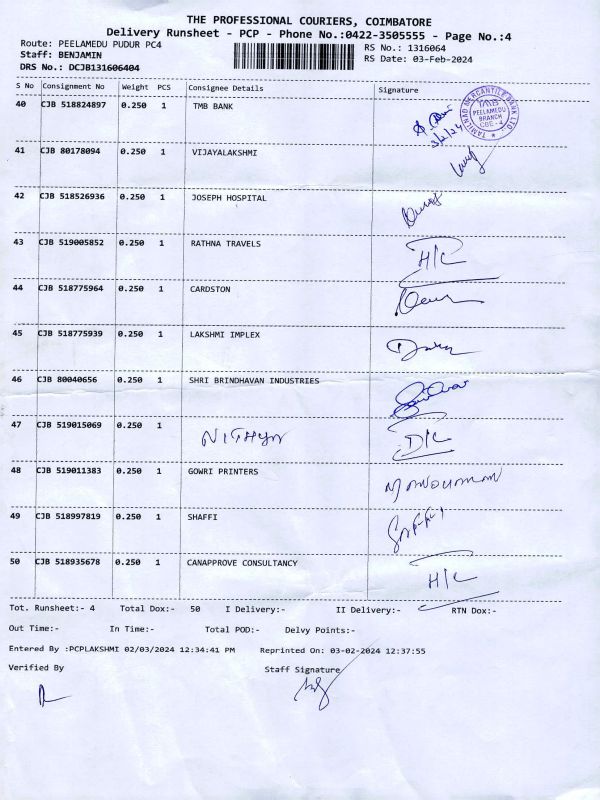 THE PROFESSIONAL COURIERS, COIMBATORE
Delivery Runsheet - PCP - Phone No.:0422-3505555 - Page No.:4
Route: PEELAMEDU PUDUR PC4 RS No.: 1316064
Staff: BENJAMIN RS Date: 03-Feb-2024
DRS No.: DCJB131606404
S No Consignment No Weight PCS Consignee Details Signature
40 CJB 518824897 0.250 1 TMB BANK
3/2/24
TAMILNAD MERCANTILE BANK LTD.
TMB
PEELAMEDU
BRANCH
CBE - 4
41 CJB 80178094 0.250 1 VIJAYALAKSHMI
42 CJB 518526936 0.250 1 JOSEPH HOSPITAL
43 CJB 519005852 0.250 1 RATHNA TRAVELS H/C
44 CJB 518775964 0.250 1 CARDSTON
45 CJB 518775939 0.250 1 LAKSHMI IMPLEX
46 CJB 80040656 0.250 1 SHRI BRINDHAVAN INDUSTRIES
47 CJB 519015069 0.250 1 NITHYA D/C
48 CJB 519011383 0.250 1 GOWRI PRINTERS
49 CJB 518997819 0.250 1 SHAFFI
50 CJB 518935678 0.250 1 CANAPPROVE CONSULTANCY H/C
Tot. Runsheet:- 4 Total Dox:- 50 I Delivery:- II Delivery:- RTN Dox:-
Out Time:- In Time:- Total POD:- Delvy Points:-
Entered By :PCPLAKSHMI 02/03/2024 12:34:41 PM Reprinted On: 03-02-2024 12:37:55
Verified By Staff Signature